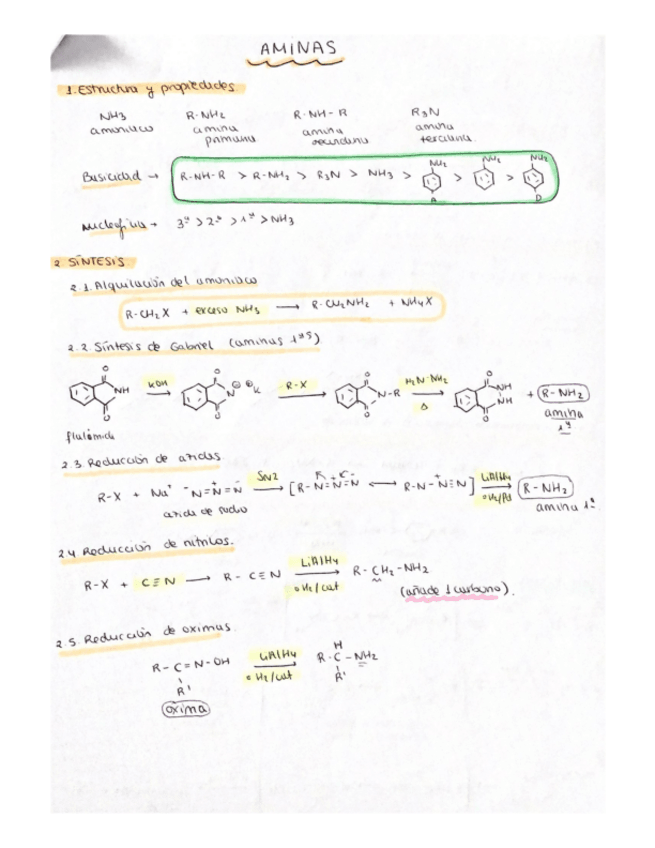 AMINAS
1. Estructura y propiedades
NH3 R-NH2 R-NH-R R3N
amoniaco amina primaria amina secundaria amina terciaria
Basicidad → R-NH-R > R-NH2 > R3N > NH3 > NH2 > NH2 > NH2
A D
Nucleofilia → 3ª > 2ª > 1ª > NH3
2. SÍNTESIS
2.1. Alquilación del amoniaco
R-CH2X + exceso NH3 → R-CH2NH2 + NH4X
2.2. Síntesis de Gabriel (aminas 1ªs)
O NH O KOH → O N⊖ ⊕K O R-X → O N-R O H2N-NH2 Δ → O NH NH O + R-NH2
amina 1ª
ftalimida
2.3. Reducción de azidas
R-X + Na⁺ ⁻N=N⁺=N⁻ SN2 → [R-N=N⁺=N⁻ ↔ R-N-N⁺≡N] LiAlH4 o H2/Pd → R-NH2
azida de sodio amina 1ª
2.4 Reducción de nitrilos.
R-X + C≡N → R-C≡N LiAlH4 o H2/cat → R-CH2-NH2
(añade 1 carbono).
2.5. Reducción de oximas
R-C=N-OH LiAlH4 o H2/cat → R-C-NH2
H
R' R'
oxima